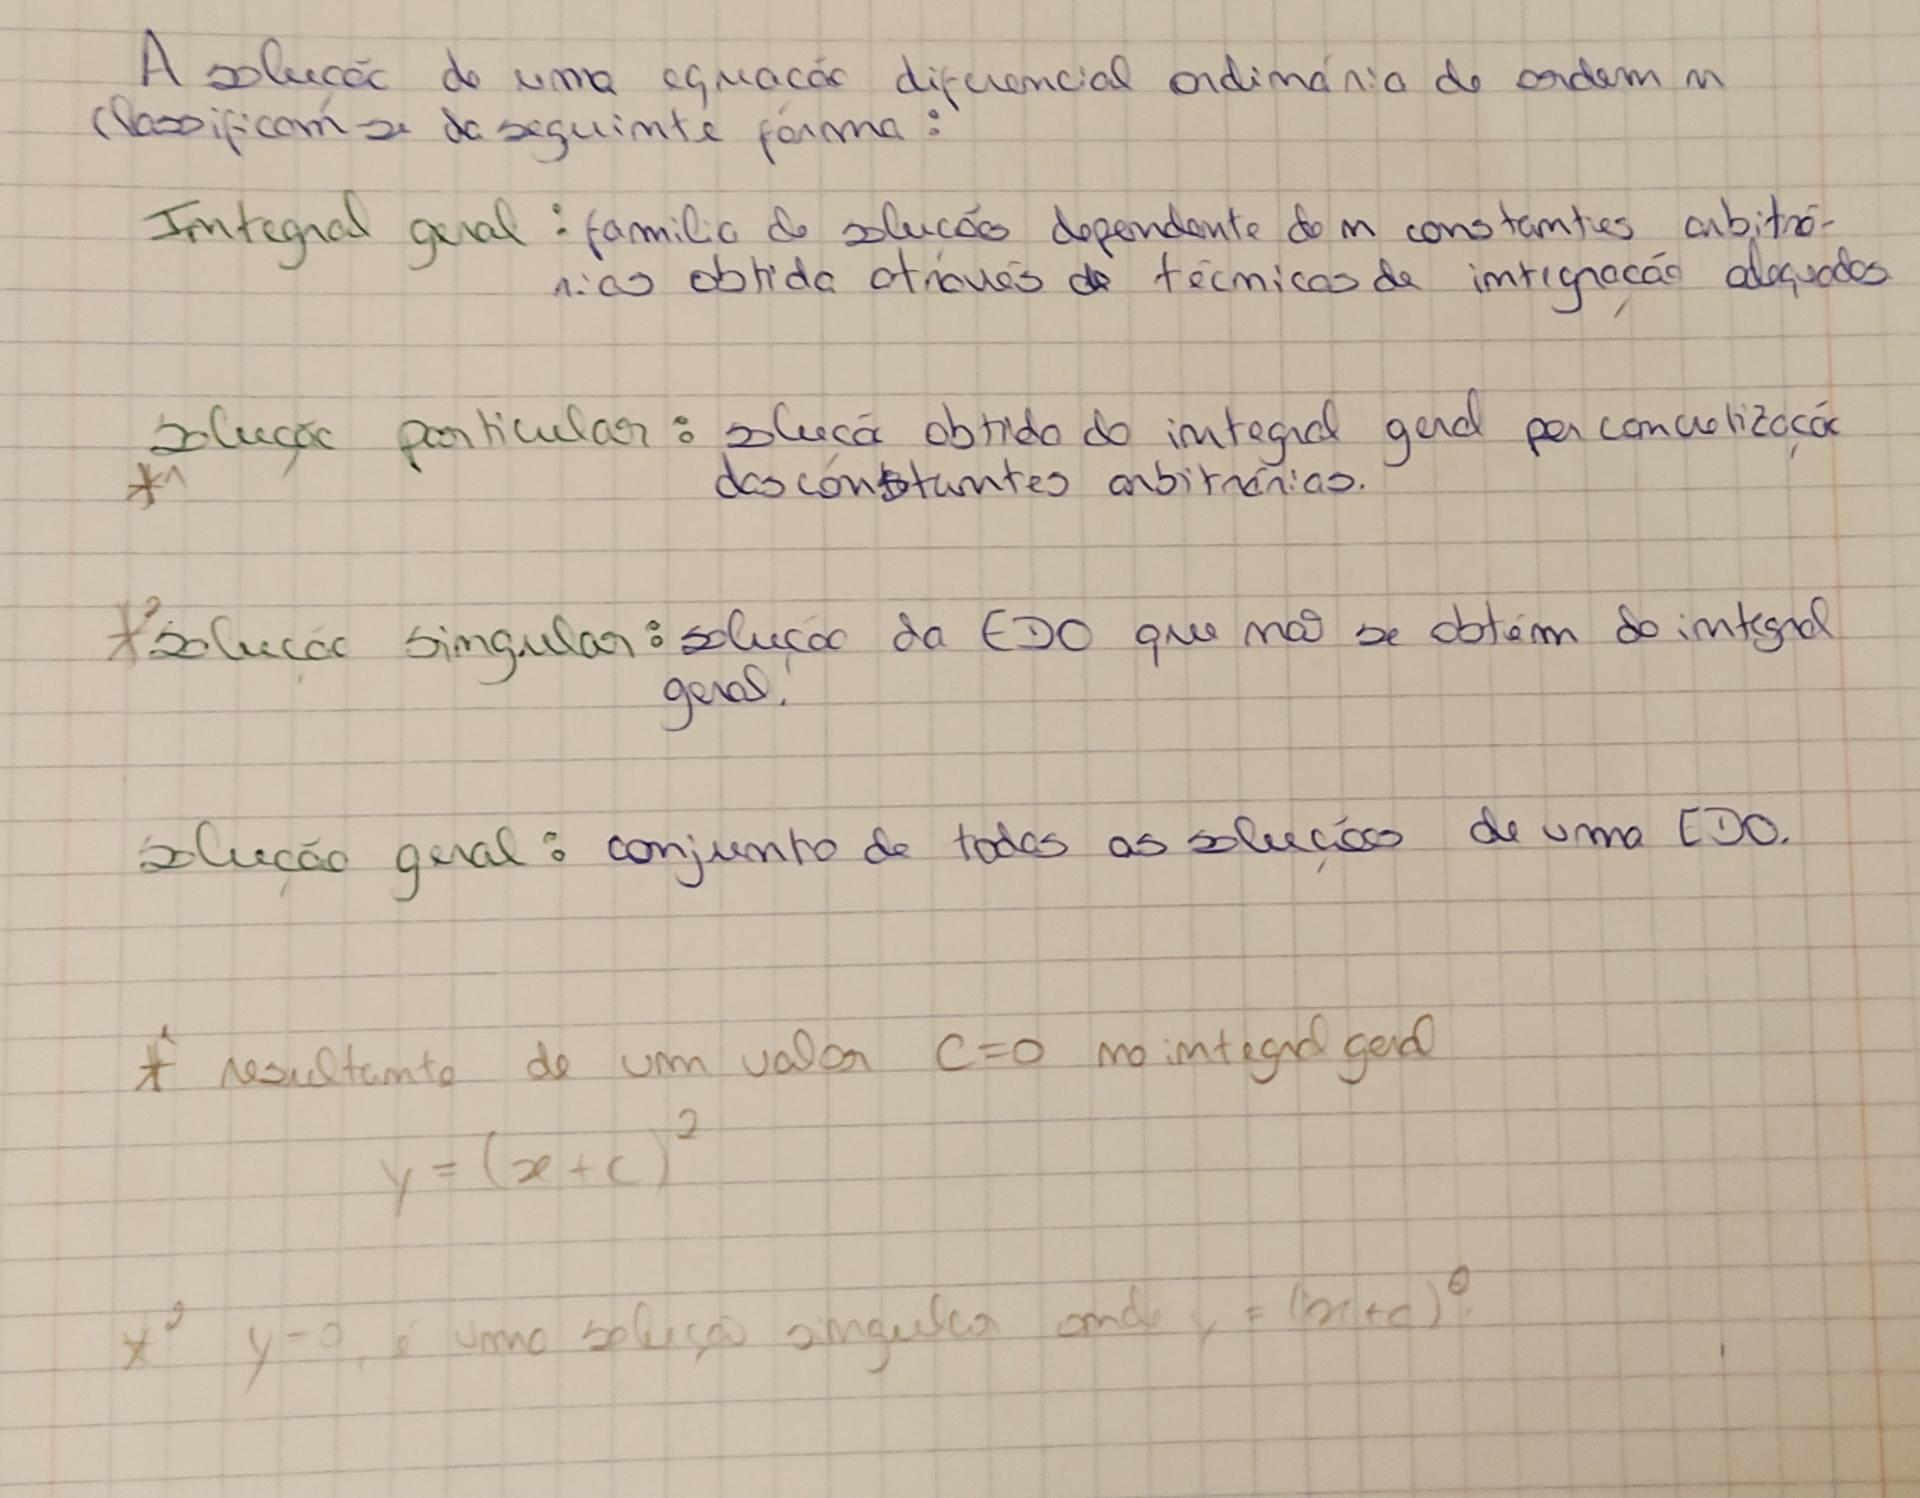 A solução de uma equação diferencial ordinária de ordem n
classificam-se da seguinte forma:
Integral geral: familia de soluções dependente de n constantes arbitrá-
rias obtida através de técnicas de integração adequadas
solução particular: soluçã obtida do integral geral por concretização
*1 das constantes arbitrárias.
*2 solução singular: solução da EDO que não se obtém do integral
geral.
solução geral: conjunto de todas as soluções de uma EDO.
*1 resultante de um valor C=0 no integral geral
y = (x+c)^2
*2 y=0, é uma solução singular onde y = (x+c)